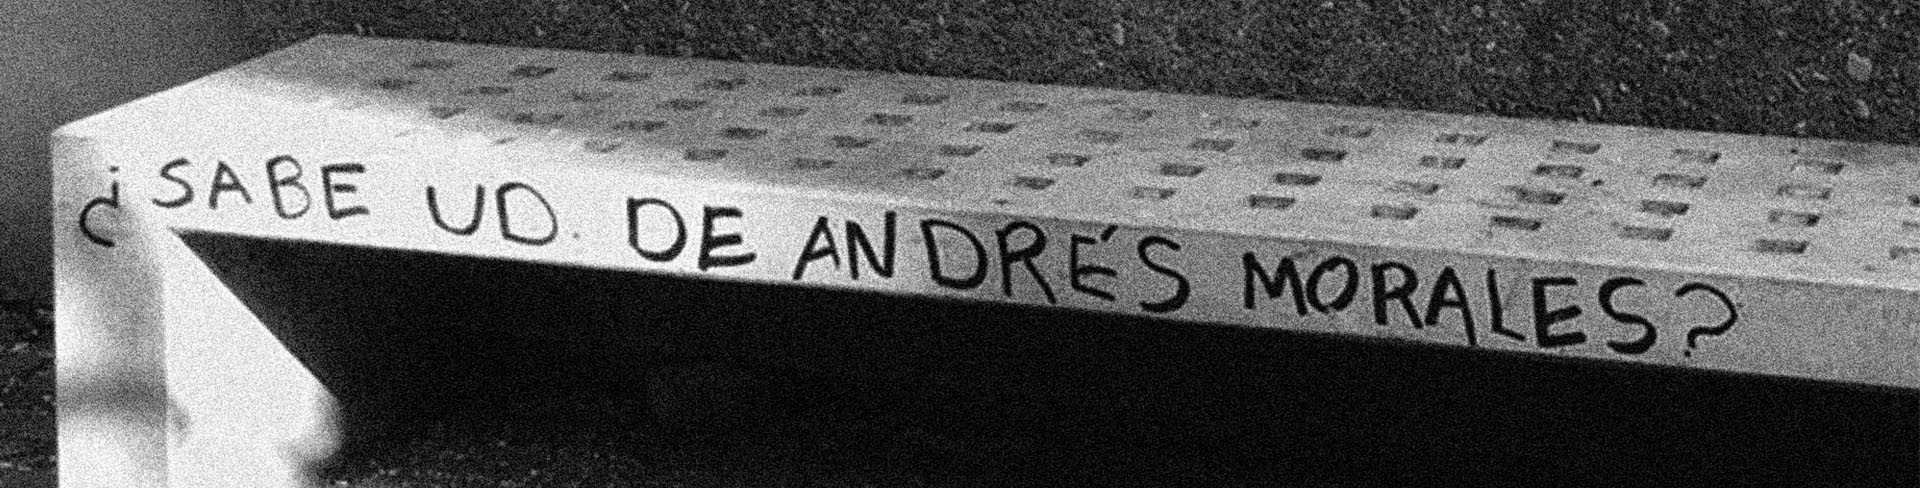 ¿SABE UD. DE ANDRÉS MORALES?